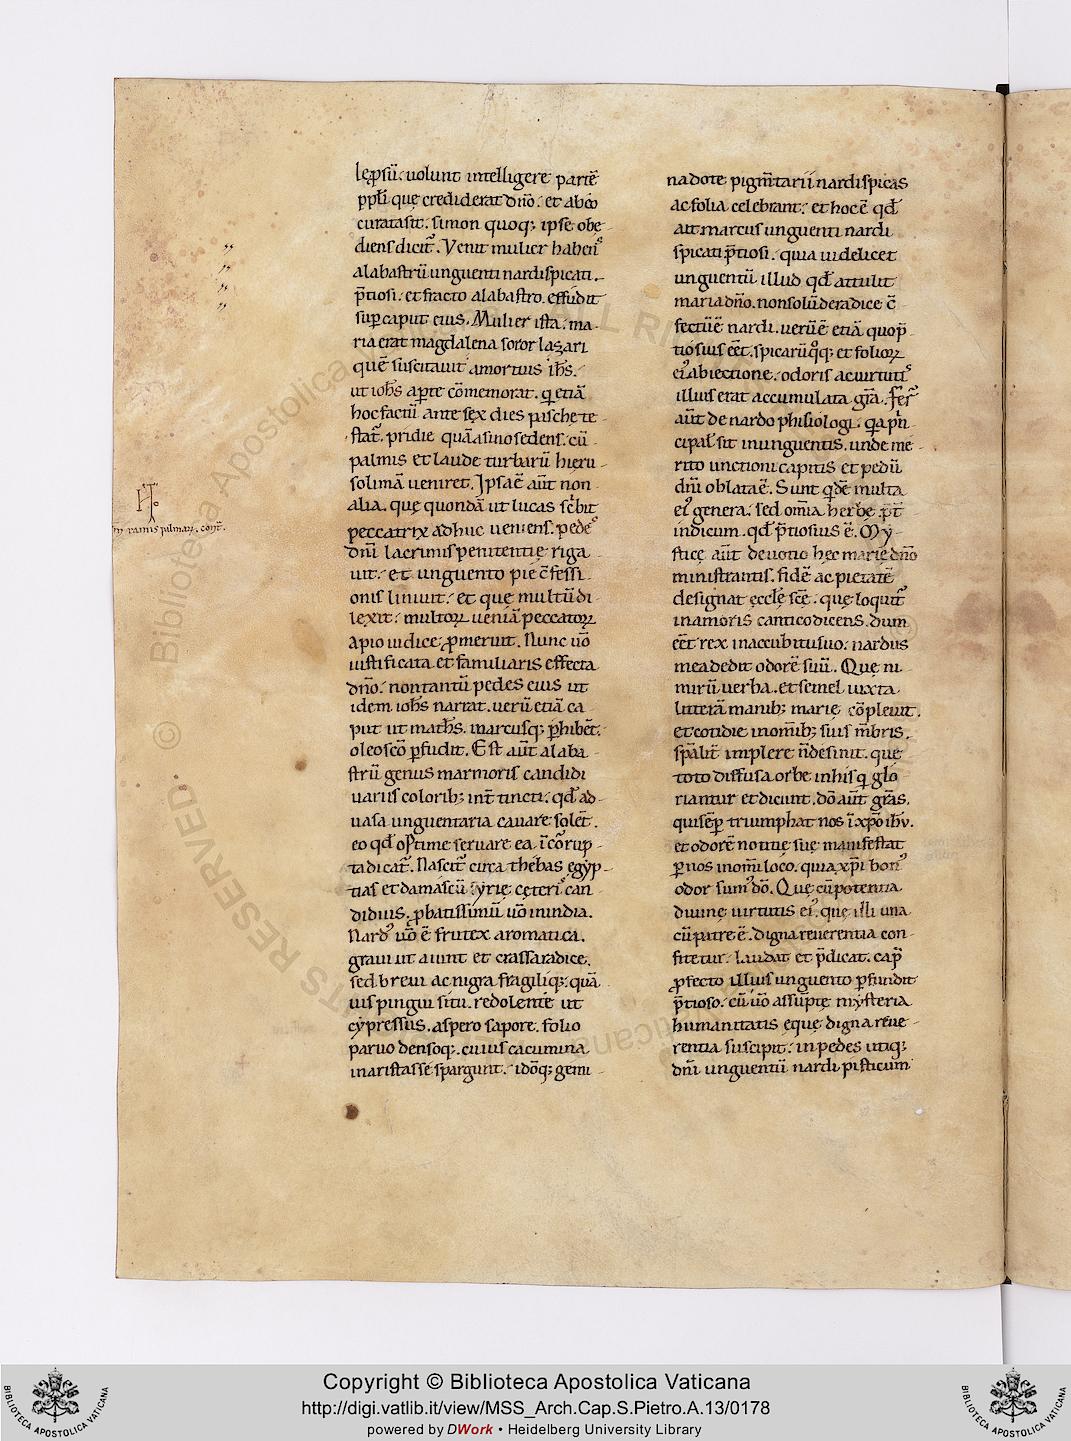 lęp̱sū: uolunt intelligere partē
ppłi quę crediderat dn̄o: et ab eo
curata sit: simon quoq; ipse obe-
diens dicit̄. Venit mulier habenˢ
alabastrū unguenti nardi spicati.
p̄tiosi: et fracto alabastro. effudit
sup̱ caput eius. Mulier ista: ma-
ria erat magdalena soror lazari
quē suscitauit a mortuis ih̄s:
ut ioh̄s ap̱te cōmemorat. q̱ etiā
hoc factū ante sex dies paschę te-
stat̄. pridie quā asino sedens: cū
palmis et laude turbarū hieru-
solimā ueniret. Ipsa ē aūt non
alia. quę quondā ut lucas sc̄bit
peccatrix adhuc ueniens. pedeˢ
dn̄i lacrimis penitentię riga-
uit: et unguento pię c̄fessi-
onis liniuit: et que multū di-
lexit: multoꝝ ueniā peccatoꝝ
a pio iudice promeruit. Nunc ūo
iustificata et familiaris effecta
dn̄o: non tantū pedes eius ut
idem ioh̄s narrat. uerū etiā ca-
put ut math̄s. marcusq; p̱hibēt.
oleo sc̄o p̱fudit. Est aūt alaba-
strū genus marmoris candidi
uariis colorib; int̄ tincti: qd̄ ad
uasa unguentaria cauare solēt.
eo qd̄ optime seruare ea īcōrup-
ta dicat̄. Nascit̄ circa thebas egyp-
tias et damascū syrię; cęteriˢ can-
didius. probatissimū ūo in india.
Nardꝰ ūo ē frutex aromatica.
graui ut aiunt et crassa radice.
sed breui ac nigra fragiliq; quā
uis pingui situ. redolente ut
cypressus. aspero sapore. folio
paruo densoq;. cuius cacumina
in aristas se spargunt: idōq; gemi
na dote; pigm̄tarii nardi spicas
ac folia celebrant: et hoc ē qd̄
ait marcus unguenti nardi
spicati p̄tiosi: quia uidelicet
unguentū illud qd̄ attulit
maria dn̄o. non solū de radice c̄-
fectū ē nardi. uerū ē etiā quo p̄-
tiosius eēt. spicarū qq; et folioꝝ
eiꝰ abiectione: odoris ac uirtutiˢ
illius erat accumulata grā. Fer̄
aūt de nardo phisiologi. q̱a pn̄-
cipal̄ sit in unguentis. unde me-
rito unctioni capitis et pedū
dn̄i oblata ē. Sunt qdē multa
eiꝰ genera: sed om̄ia herbę p̄t
indicum. qd̄ p̄tiosius ē. My-
sticę aūt deuotio hęc marię dn̄o
ministrantis. fidē ac pietatē
designat ęcclę scē: quę loquit̄
in amoris cantico dicens. dum
eēt rex in accubitu suo: nardus
mea dedit odorē suū. Quę ni-
mirū uerba. et semel iuxta
litterā manib; marię cōpleuit.
et cotidie in om̄ib; suis m̄bris.
sp̄alit̄ implere n̄ desinit. quę
toto diffusa orbe in his q̱ glo-
riantur et dicunt. dō aūt grās.
qui sēp̱ triumphat nos ī xp̄o ih̄u.
et odorē notitię suę manifestat
p̱ nos in om̄i loco. quia xp̄i bonꝰ
odor sumꝰ dō. Quę cū potentia
diuinę uirtutis eiꝰ. quę illi una
cū patre ē. digna reuerentia con-
fitetur: laudat et p̄dicat. cap̱
profecto illius unguento p̱fundit
p̄tioso: cū ūo assumptę mysteria
humanitatis eque; digna reue-
rentia suscipit: in pedes utiq;
dn̄i unguentū nardi pisticum
In ramis palmaꝝ. cont̄.
Copyright © Biblioteca Apostolica Vaticana
http://digi.vatlib.it/view/MSS_Arch.Cap.S.Pietro.A.13/0178
powered by DWork • Heidelberg University Library
BIBLIOTECA APOSTOLICA VATICANA
BIBLIOTECA APOSTOLICA VATICANA